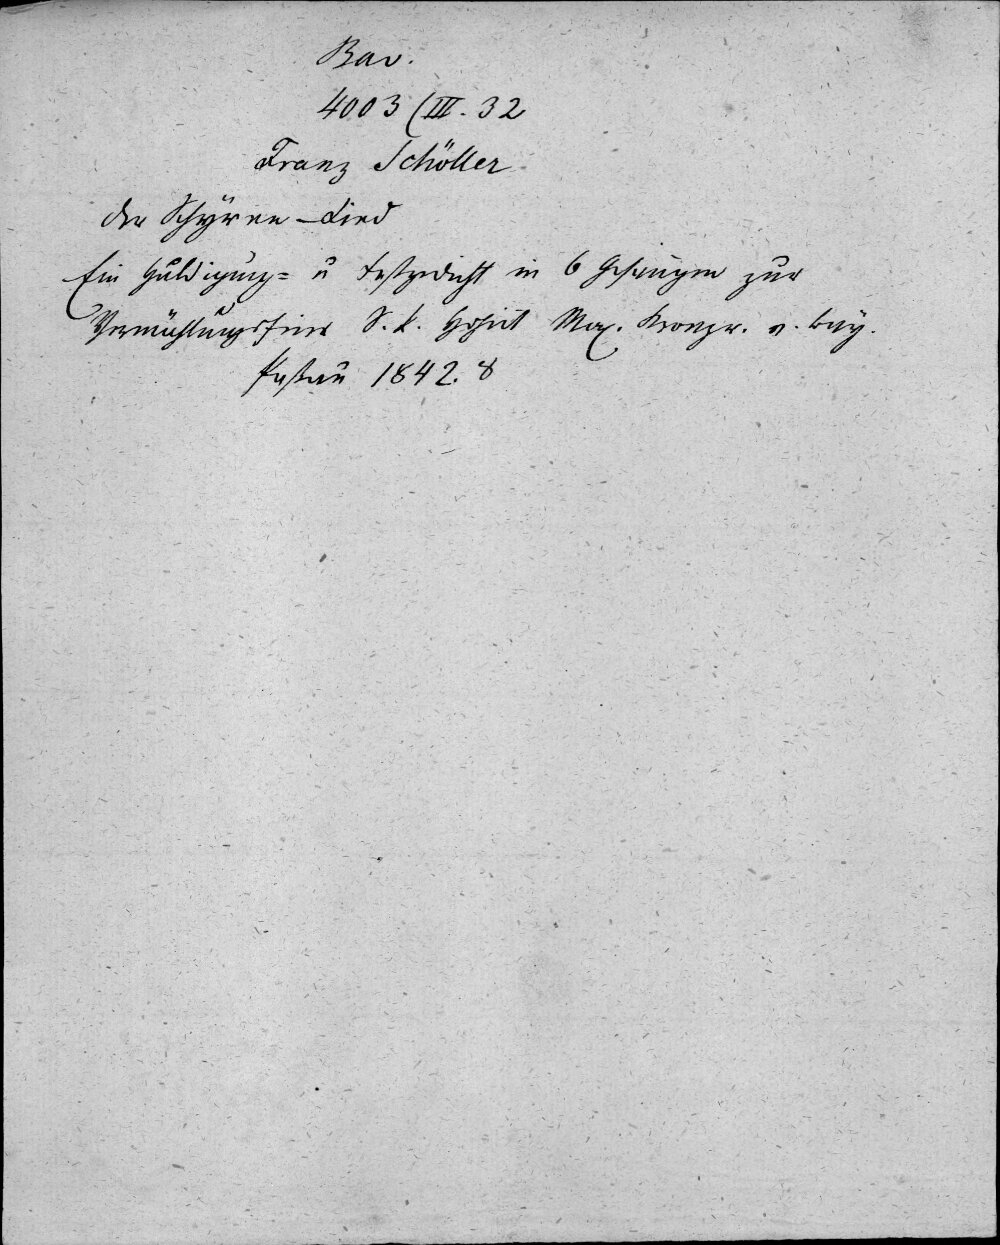 Bav.
4003 (III. 32
Franz Schöller
der Schyren-Lied
Ein Huldigungs= u Festgedicht in 6 Gesängen zur
Vermählungsfeier S. k. Hoheit Max. Kronpr. v. Bay.
Passau 1842. 8